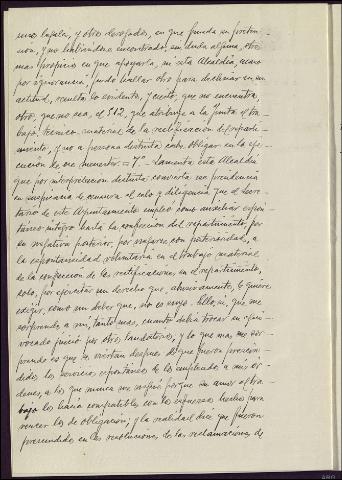 y otros derogados, en que funda su preten-
sion, y no habiendose encontrado, sin duda alguna, otro
mas propicio en que apoyarla, ni esta Alcaldía, acaso
por ignorancia, pudo hallar otro para declinar en su
actitud, resulta lo evidente, y cierto, que no encuentra
otro, que no sea, el 512, que atribuye a la Junta el tra-
bajo tecnico material de la rectificacion del reparti-
miento, y no a persona distinta cabe obligar en la eje-
cución de ese menester. = 7º - Lamenta esta Alcaldía
que por interpretacion distinta convierta su
en de censura el celo y diligencia que el Secre-
tario de este Ayuntamiento empleó como auxiliar espon-
táneo integro hasta la confeccion del repartimiento, por
su negativa posterior, por negarse, con posterioridad, a
la espontaneidad voluntaria en el trabajo material
de la confeccion de las rectificaciones en el repartimiento,
solo, por ejercitar un derecho que, abusivamente, le quiere
exigir, como un deber que, no es suyo. Ello, si, que me
sorprende a mi, tanto mas, cuanto debia trocar su equi-
vocado juicio por otro, laudatorio, y lo que mas, me sor-
prende es que se insistan despues de que fueron prescin-
didos los servicios espontaneos de los empleados a mis or-
denes, a los que nunca me negué porque su amor al tra-
bajo los hacia compatibles con los esfuerzos hechos para
vencer los de obligación; y la realidad dice que fueron
prescindidos en las resoluciones de las reclamaciones, de